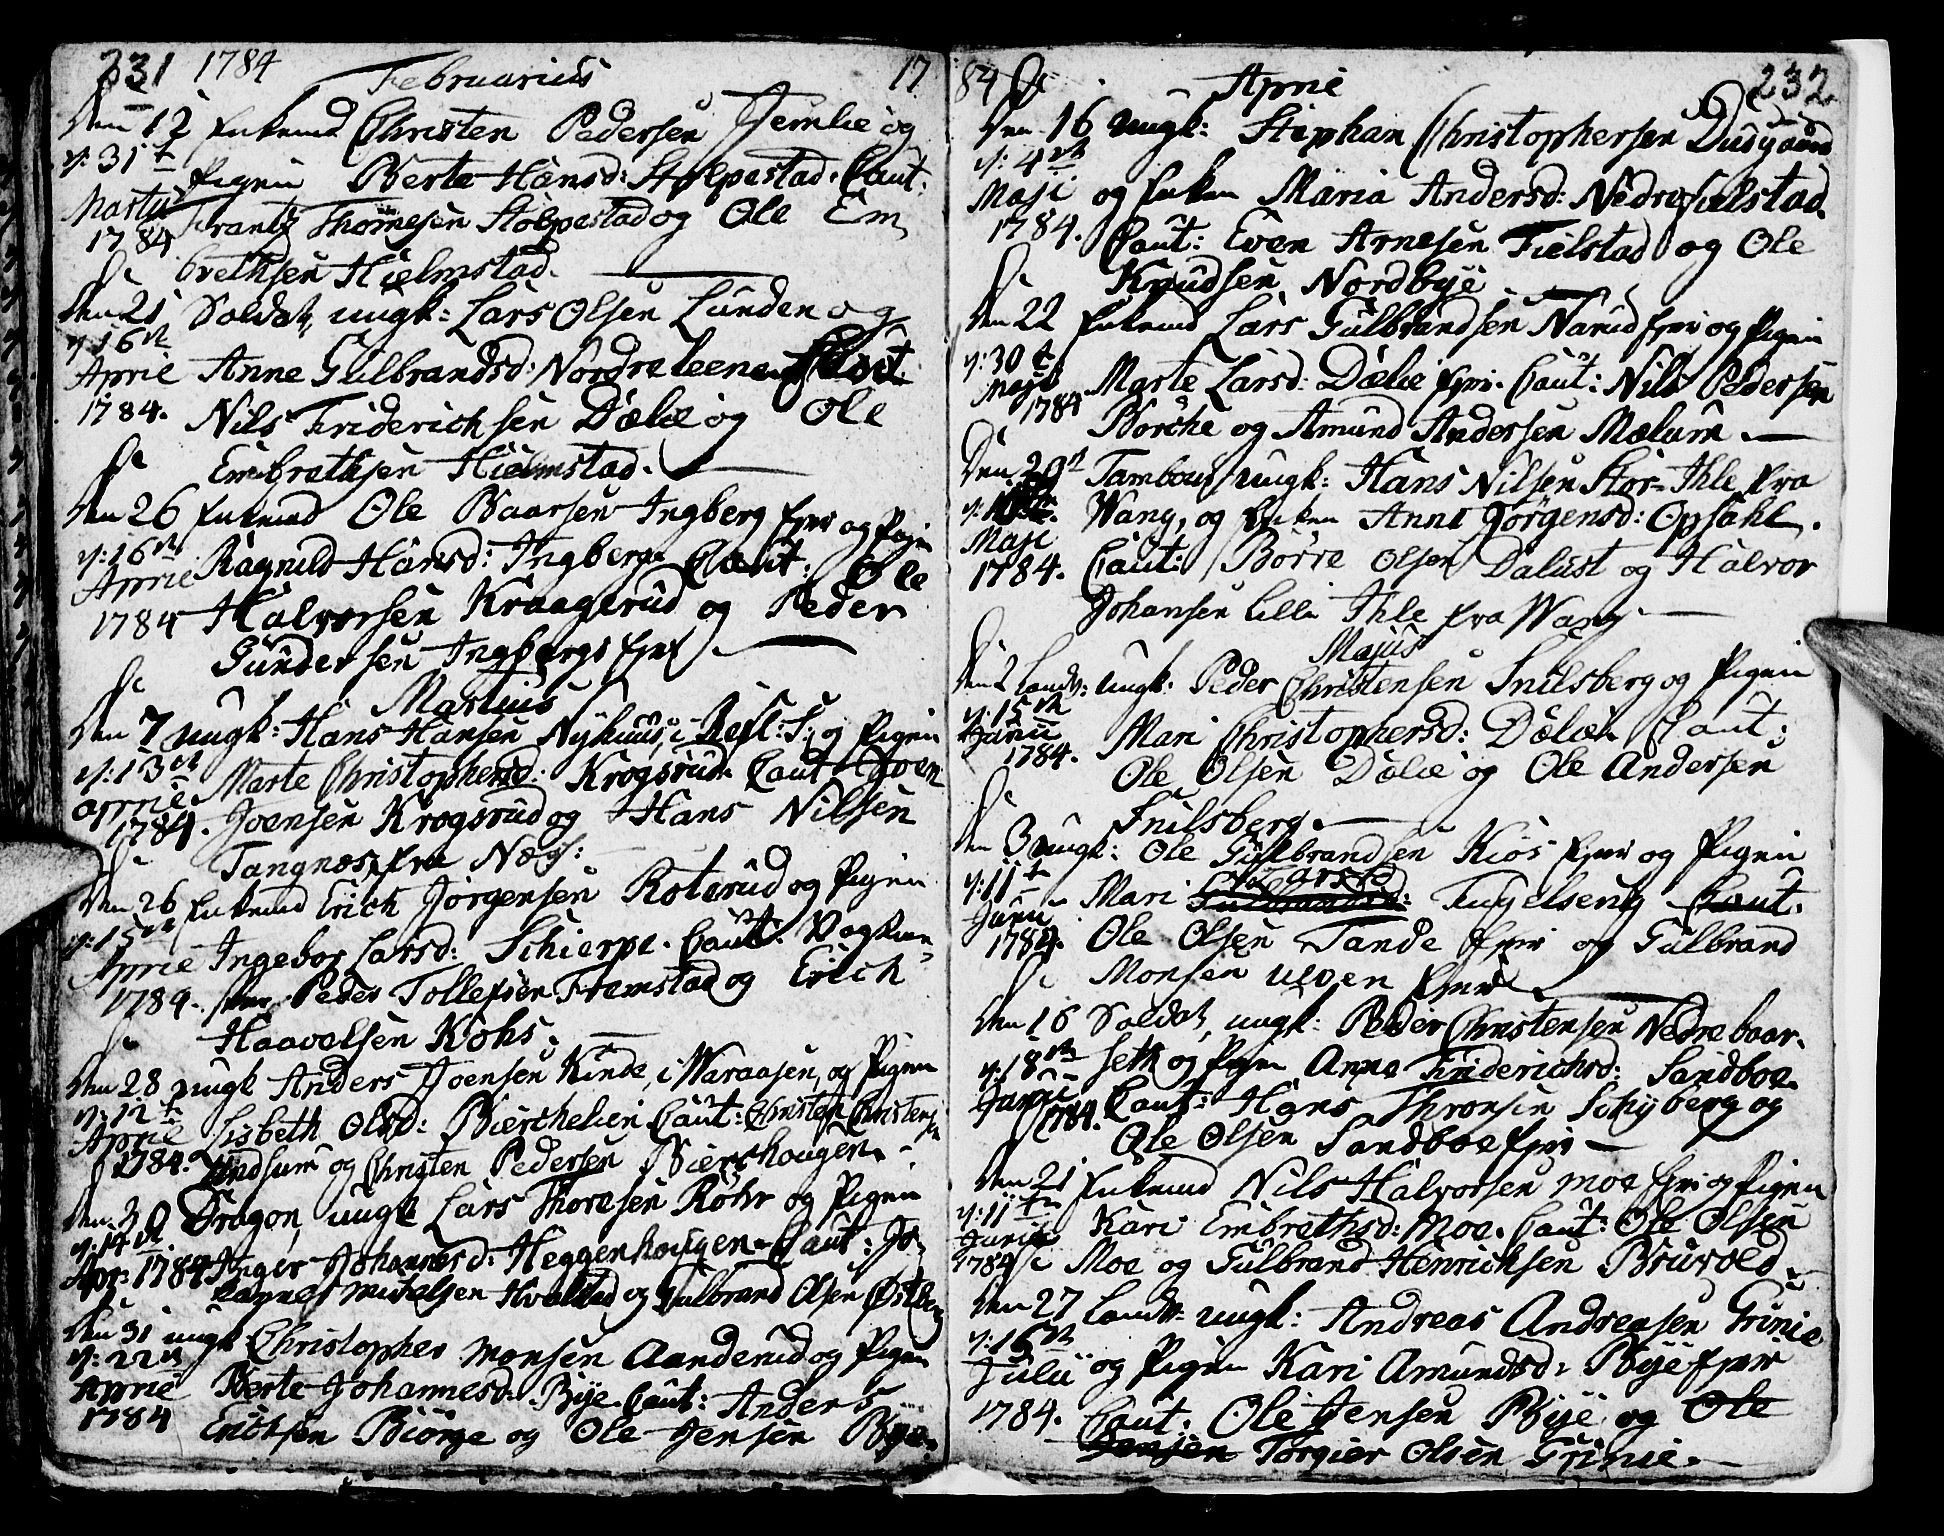 231 1784 Februarius 17
Den 12 Enkemd Christen Pedersen Jemlie og
v: 31t Pigen Berte Hansd: Stolpestad. Caut:
Martii Frantz Thomesen Stolpestad og Ole Em
1784 brethsen Hielmstad.
Den 21 Soldat, ungk: Lars Olsen Lunden og
v: 16de
Aprie Anne Gulbrandsd: Nordre leene Caut
1784. Nils Friderichsen Dælie og Ole
Embrethsen Hielmstad.
Den 26 Enkemd Ole Baarsen Ingberg Ejer og Pigen
v: 16de Ragnild Hansd: Ingberg Caut: Ole
Aprie
1784 Halvorsen Kraagerud og Peder
Gundersen Ingbergs Ejer
Martius
Den 7 ungk: Hans Hansen Nyhuus, i og Pigen
v: 13de Marte Christophersd: Krogsrud. Caut: Joen
Aprie
1784. Joensen Krogsrud og Hans Nilsen
Tangnes fra Næs:
Den 26 Enkemd Erich Jørgensen Roterud og Pigen
v: 15de
Aprie Ingebor Larsd: Schierpe. Caut:
1784. Peder Tollefsen Framstad og Erich
Haavolsen Kohs.
Den 28 ungk Anders Joensen Kinde, i Waraasen, og Pigen
v: 12t
Aprie Lisbeth Olsd: Bierchelien Caut: Christen Christensen
1784. Lindsum og Christen Pedersen Bierchougen.
Den 30 Dragon, ungk Lars Thoresen Røhr og Pigen
v: 14de
Apr: 1784 Inger Johannesd: Heggenhougen. Caut: Jo-
hannes Mikelsen Hvalstad og Gulbrand Olsen Østberg
Den 31 ungk Christopher Monsen Aanderud og Pigen
v: 22de
Aprie Berte Johannesd: Bye. Caut: Anders
1784 Erichsen Biørge og Ole Jensen Bye.
84 Aprie 232
Den 16 ungk: Stephan Christophersen
v: 4de
Maji og Enken Maria Andersd: Nedre Fielstad
1784. Caut: Even Arnesen Fielstad og Ole
Knudsen Nordbye
Den 22 Enkemd Lars Gulbrandsen Narud Ejer og Pigen
v: 30t
Maji Marte Larsd: Dælie Ejer. Caut: Nils Pedersen
1784 Borche og Amund Andersen Mælum.
Den 29t Tambour, ungk: Hans Nilsen Stor-Ihle fra
v: Wang, og Enken Anne Jørgensd: Opsahl.
Maji
1784. Caut: Børre Olsen Dalust og Halvor
Johansen Lille Ihle fra Wang.
Majus
Den 2 Landv: ungk: Peder Christensen Snilsberg og Pigen
v: 15de
Junii Mari Christophersd: Dælie Caut:
1784. Ole Olsen Dælie og Ole Andersen
Snilsberg.
Den 3 ungk: Ole Gulbrandsen Kiøs Ejer og Pigen
v: 11t Mari Larsd Gulbrandsd: Fugelseng Caut.
Junii
1784. Ole Olsen Tande Ejer og Gulbrand
Monsen Ulven Ejer
Den 16 Soldat, ungk: Peder Christensen Nedre baar-
v: 18de seth og Pigen Anne Friderichsd: Sandboe
Junii
1784. Caut: Hans Thronsen Schyberg og
Ole Olsen Sandboe Ejer
Den 21 Enkemd Nils Halvorsen Moe Ejer og Pigen
v: 11te
Junii Kari Embrethsd: Moe. Caut: Ole Olsen
1784 Moe og Gulbrand Henrichsen Bruvold.
Den 27 Landv: ungk: Andreas Andreasen Grinie
v: 16de
Julii og Pigen Kari Amundsd: Bye Ejer
1784. Caut: Ole Jensen Bye og Ole
Jensen Torgier Olsen Grinie.